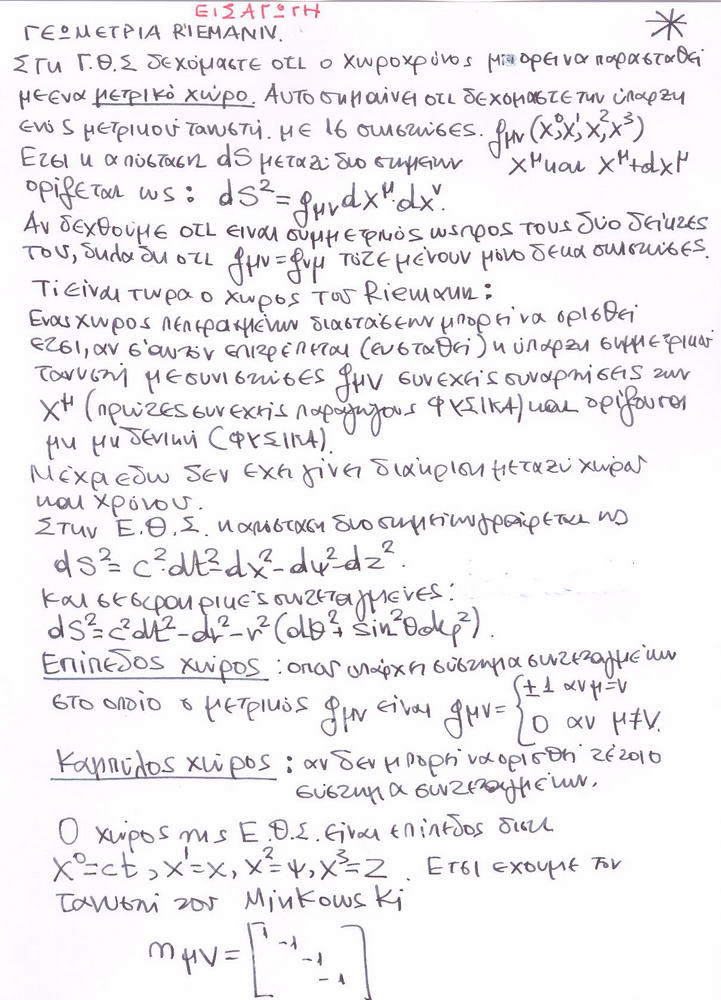 ΕΙΣΑΓΩΓΗ
ΓΕΩΜΕΤΡΙΑ RIEMANN.
ΣΤΗ Γ.Θ.Σ δεχόμαστε οτι ο χωροχρόνος μπορει να παρασταθεί
με ενα μετρικό χώρο. Αυτο σημαίνει οτι δεχομαστε την ύπαρξη
ενός μετρικού τανυστή. με 16 συνιστώσες. gμν(x⁰,x¹,x²,x³)
Ετσι η απόσταση dS μεταξύ δυο σημείων x^μ και x^μ+dx^μ
ορίζεται ως: dS²=gμν dx^μ·dx^ν.
Αν δεχθούμε οτι ειναι συμμετρικός ως προς τους δύο δείκτες
του, δηλαδη οτι gμν=gνμ τότε μένουν μόνο δεκα συνιστώσες.
Τι είναι τωρα ο χωρος του Riemann:
Ενας χωρος πεπερασμένων διαστάσεων μπορεί να ορισθεί
ετσι, αν σ'αυτόν επιτρέπεται (ευσταθεί) η ύπαρξη συμμετρικού
τανυστή με συνιστώσες gμν συνεχείς συναρτήσεις των
x^μ (πρώτες συνεχείς παραγώγους ΦΥΣΙΚΑ) και ορίζουσα
μη μηδενική (ΦΥΣΙΚΑ).
Μέχρι εδω δεν εχει γίνει διακριση μεταξύ χώρου
και χρόνου.
Στην Ε.Θ.Σ. η αποσταση δυο σημείων γράφεται ως
dS²=c²·dt²-dx²-dψ²-dz².
και σε σφαιρικές συντεταγμένες:
dS²=c²dt²-dr²-r²(dθ²+sin²θdφ²).
Επίπεδος χώρος: οπου υπάρχει σύστημα συντεταγμένων
στο οποίο ο μετρικός gμν είναι gμν={±1 αν μ=ν
0 αν μ≠ν.
Καμπύλος χώρος: αν δεν μπορεί να ορισθεί τέτοιο
σύστημα συντεταγμένων.
Ο χώρος της Ε.Θ.Σ. είναι επίπεδος διοτι
x⁰=ct, x¹=x, x²=ψ, x³=z. Ετσι εχουμε τον
τανυστή του Minkowski
nμν=[1 -1 -1 -1]